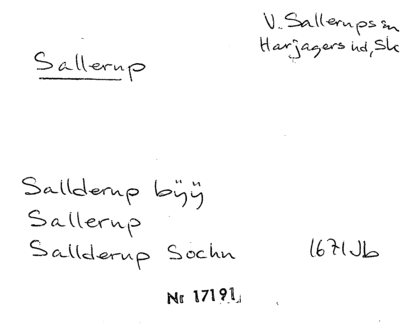 V. Sallerups sn
Harjagers hd, Sk
Sallerup
Sallderup bÿÿ
Sallerup
Sallderup Sochn 1671 Jb
Nr 17191